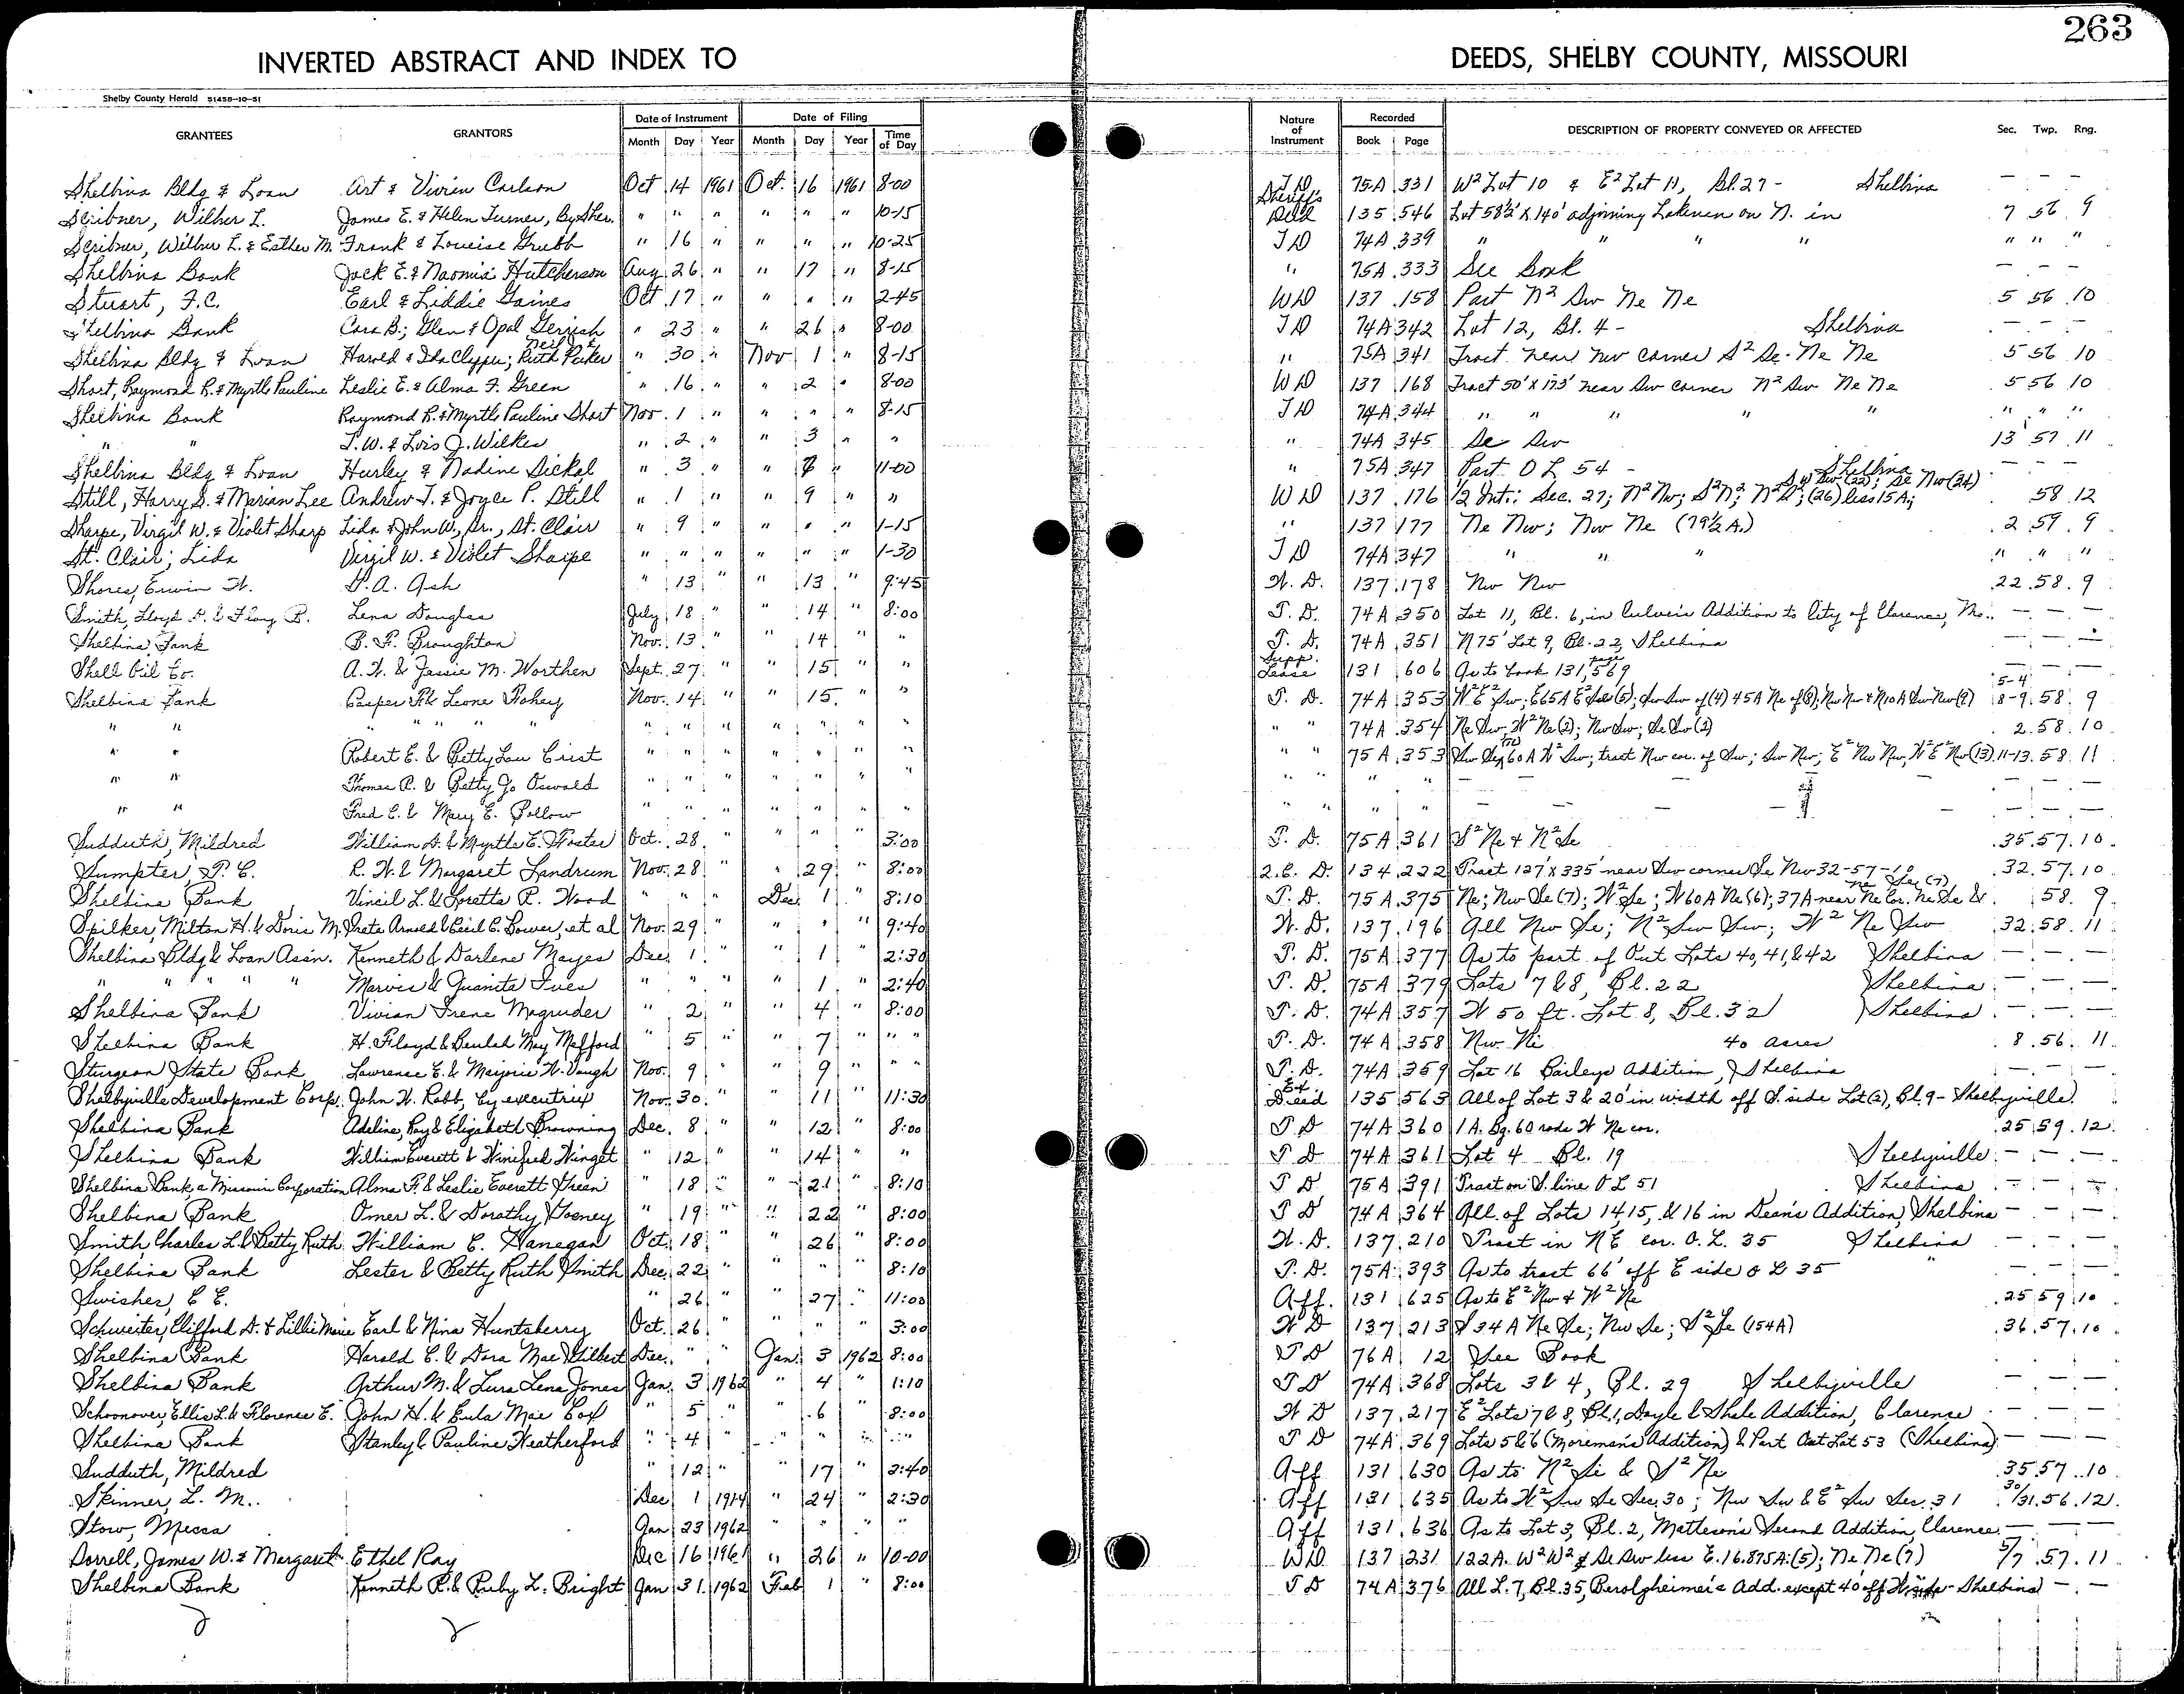 263
INVERTED ABSTRACT AND INDEX TO DEEDS, SHELBY COUNTY, MISSOURI
Shelby County Herald 51458-10-51
GRANTEES GRANTORS Date of Instrument Date of Filing Nature of Instrument Recorded DESCRIPTION OF PROPERTY CONVEYED OR AFFECTED Sec. Twp. Rng.
Month Day Year Month Day Year Time of Day Book Page
Shelbina Bldg & Loan Art & Vivien Carlson Oct 14 1961 Oct. 16 1961 8-00 T D 75A 331 W² Lot 10 & E² Lot 11, Bl. 27 - Shelbina — — —
Scribner, Wilber L. James E. & Helen Turner, By Sher. " " " " " " 10-15 Sheriff's Deed 135 546 Lot 58½' x 140' adjoining Lakenan on N. in 7 56 9
Scribner, Wilbur L. & Esther M. Frank & Louise Grubb " 16 " " " " 10-25 T D 74A 339 " " " " " " "
Shelbina Bank Jack E. & Naomia Hutcherson Aug 26 " " 17 " 8-15 " 75A 333 See Book — — —
Stuart, F.C. Earl & Liddie Gaines Oct 17 " " " " 2-45 WD 137 158 Part N² Sw Ne Ne 5 56 10
Shelbina Bank Cora B.; Glen & Opal Gerrish " 23 " " 26 " 8-00 T D 74A 342 Lot 12, Bl. 4 - Shelbina — — —
Shelbina Bldg & Loan Harold & Ida Clypper; Neil & Ruth Parker " 30 " Nov 1 " 8-15 " 75A 341 Tract near Nw corner S² Se Ne Ne 5 56 10
Short, Raymond R. & Myrtle Pauline Leslie E. & Alma F. Green " 16 " " 2 " 8-00 WD 137 168 Tract 50' x 175' near Sw corner N² Sw Ne Ne 5 56 10
Shelbina Bank Raymond R. & Myrtle Pauline Short Nov. 1 " " " " 8-15 T D 74A 344 " " " " " " " "
" " T. W. & Lois J. Wilkes " 2 " " 3 " " " 74A 345 Se Sw 13 57 11
Shelbina Bldg & Loan Hurley & Nadine Sickal " 3 " " 8 " 11-00 " 75A 347 Part O L 54 - Shelbina — — —
Still, Harry S. & Marian Lee Andrew T. & Joyce P. Still " 1 " " 9 " " WD 137 176 ½ Int.: Sec. 27; N² Nw; S² N²; N² S²; (26) less 15A; Sw Sw (22); Se Nw (24) 58 12
Sharpe, Virgil W. & Violet Sharp Lida & John W., Sr., St. Clair " 9 " " " " 1-15 " 137 177 Ne Nw; Nw Ne (79½ A.) 2 59 9
St. Clair, Lida Virgil W. & Violet Sharpe " " " " " " 1-30 T D 74A 347 " " " " " "
Shores, Erwin W. S. A. Ash " 13 " " 13 " 9:45 W. D. 137 178 Nw Nw 22 58 9
Smith, Lloyd A. & Floy B. Lena Douglas July 18 " " 14 " 8:00 T. D. 74A 350 Lot 11, Bl. 6, in Culver's Addition to City of Clarence, Mo. — — —
Shelbina Bank B. F. Broughton Nov. 13 " " 14 " T. D. 74A 351 N 75' Lot 9, Bl. 22, Shelbina — — —
Shell Oil Co. A. W. & Jessie M. Worthen Sept. 27 " " 15 " " Supp. Lease 131 606 As to book 131, page 569 — — —
Shelbina Bank Casper R & Leone Fohey Nov. 14 " " 15 " " T. D. 74A 353 W² E² Sw; E 65A E² Se (5); Sw Sw of (4) 45A Ne of (8); Nw Nw & N 10 A Sw Nw (9) 5-4 8-9 58 9
" " " " " " " " " " " " " " 74A 354 Ne Sw; W² Ne (2); Nw Sw; Se Sw (2) 2 58 10
" " Robert E. & Betty Lou Crist " " " " " " " " " 75A 353 Sw Se; 60 A W² Sw; tract Nw cor. of Sw; Sw Nw; E² Nw Nw, W² E² Nw (13) 11-13 58 11
" " Thomas R. & Betty Jo Oswald " " " " " " " " " " " — — — —
" " Fred C. & Mary E. Pollow " " " " " " " " " " " — — — — — — —
Sudduth, Mildred William D. & Myrtle E. Foster Oct. 28 " " " " 3:00 T. D. 75A 361 S² Ne & N² Se 35 57 10
Sumpter, T. C. R. W. & Margaret Landrum Nov. 28 " " 29 " 8:00 Q. C. D. 134 222 Tract 127' x 335' near Sw corner Se Nw 32-57-10 32 57 10
Shelbina Bank Vincil L. & Loretta R. Wood " " " Dec 1 " 8:10 T. D. 75A 375 Ne; Nw Se (7); W² Se; W 60A Ne (6); 37A near Ne Cor. Ne Se & Ne Se (7) 58 9
Spilker, Milton H. & Doris M. Greta Arnold & Cecil C. Bower, et al Nov. 29 " " " " 9:40 W. D. 137 196 All Nw Se; N² Sw Sw; W² Ne Sw 32 58 11
Shelbina Bldg & Loan Ass'n. Kenneth & Darlene Mayes Dec. 1 " " 1 " 2:30 T. D. 75A 377 As to part of Out Lots 40, 41, & 42 Shelbina — — —
" " " " Marvis & Juanita Ives " " " " 1 " 2:40 T. D. 75A 379 Lots 7 & 8, Bl. 22 Shelbina — — —
Shelbina Bank Vivian Irene Magruder " 2 " " 4 " 8:00 T. D. 74A 357 W 50 ft. Lot 8, Bl. 32 Shelbina — — —
Shelbina Bank H. Floyd & Beulah May Mefford " 5 " " 7 " " " T. D. 74A 358 Nw Ne 40 acres 8 56 11
Sturgeon State Bank Lawrence E. & Marjorie W. Vaugh Nov. 9 " " 9 " " " T. D. 74A 359 Lot 16 Baileys Addition, Shelbina — — —
Shelbyville Development Corp. John W. Robb, by executrix Nov. 30 " " 11 " 11:30 Ex. Deed 135 563 All of Lot 3 & 20' in width off S. side Lot (2), Bl. 9 - Shelbyville
Shelbina Bank Adeline, Roy & Elizabeth Browning Dec. 8 " " 12 " 8:00 T D 74A 360 1 A. Bg. 60 rods W Ne cor. 25 59 12
Shelbina Bank William Everett & Winifred Winget " 12 " " 14 " " T D 74A 361 Lot 4 Bl. 19 Shelbyville — — —
Shelbina Bank, a Missouri Corporation Alma F. & Leslie Everett Green " 18 " " 21 " 8:10 T D 75A 391 Tract on S. line O L 51 Shelbina — — —
Shelbina Bank Omer L. & Dorothy Gooney " 19 " " 22 " 8:00 T D 74A 364 All of Lots 14, 15, & 16 in Dean's Addition, Shelbina — — —
Smith Charles L. & Betty Ruth William C. Hanegan Oct. 18 " " 26 " 8:00 W. D. 137 210 Tract in NE cor. O. L. 35 Shelbina — — —
Shelbina Bank Lester & Betty Ruth Smith Dec. 22 " " " 8:10 T. D. 75A 393 As to tract 66' off E side O L 35 " — — —
Swisher, C. E. " 26 " " 27 " 11:00 Aff. 131 625 As to E² Nw & W² Ne 25 59 10
Schwieter, Clifford D. & Lillie Marie Earl & Nina Huntsberry Oct. 26 " " " " 3:00 W D 137 213 S 34 A Ne Se; Nw Se; S² Se (154A) 36 57 10
Shelbina Bank Harold C. & Dora Mae Gilbert Dec. " " Jan. 3 1962 8:00 T D 76A 12 See Book
Shelbina Bank Arthur M. & Lura Lena Jones Jan. 3 1962 " 4 " 1:10 T D 74A 368 Lots 3 & 4, Bl. 29 Shelbyville — — —
Schoonover, Ellis L. & Florence E. John H. & Eula Mae Cox " 5 " " 6 " 8:00 W D 137 217 E² Lots 7 & 8, Bl. 1, Doyle & Shale Addition, Clarence — — —
Shelbina Bank Stanley & Pauline Weatherford " 4 " " " " " T D 74A 369 Lots 5 & 6 (Moreman's Addition) & Part Out Lot 53 (Shelbina) — — —
Sudduth, Mildred " 12 " " 17 " 2:40 Aff 131 630 As to N² Se & S² Ne 35 57 10
Skinner, L. M. Dec 1 1914 " 24 " 2:30 Aff 131 635 As to W² Sw Se Sec. 30; Nw Sw & E² Sw Sec. 31 30/31 56 12
Stow, Mecca Jan 23 1962 " " " " Aff 131 636 As to Lot 3, Bl. 2, Matteson's Second Addition, Clarence — — —
Sorrell, James W. & Margaret Ethel Ray Dec 16 1961 " 26 " 10-00 WD 137 231 122A. W² W² & Se Sw less E. 16.875A. (5); Ne Ne (7) 5/7 57 11
Shelbina Bank Kenneth R. & Ruby L. Bright Jan 31 1962 Feb 1 " 8:00 T D 74A 376 All L. 7, Bl. 35, Berolzheimer's Add. except 40' off W side - Shelbina — —